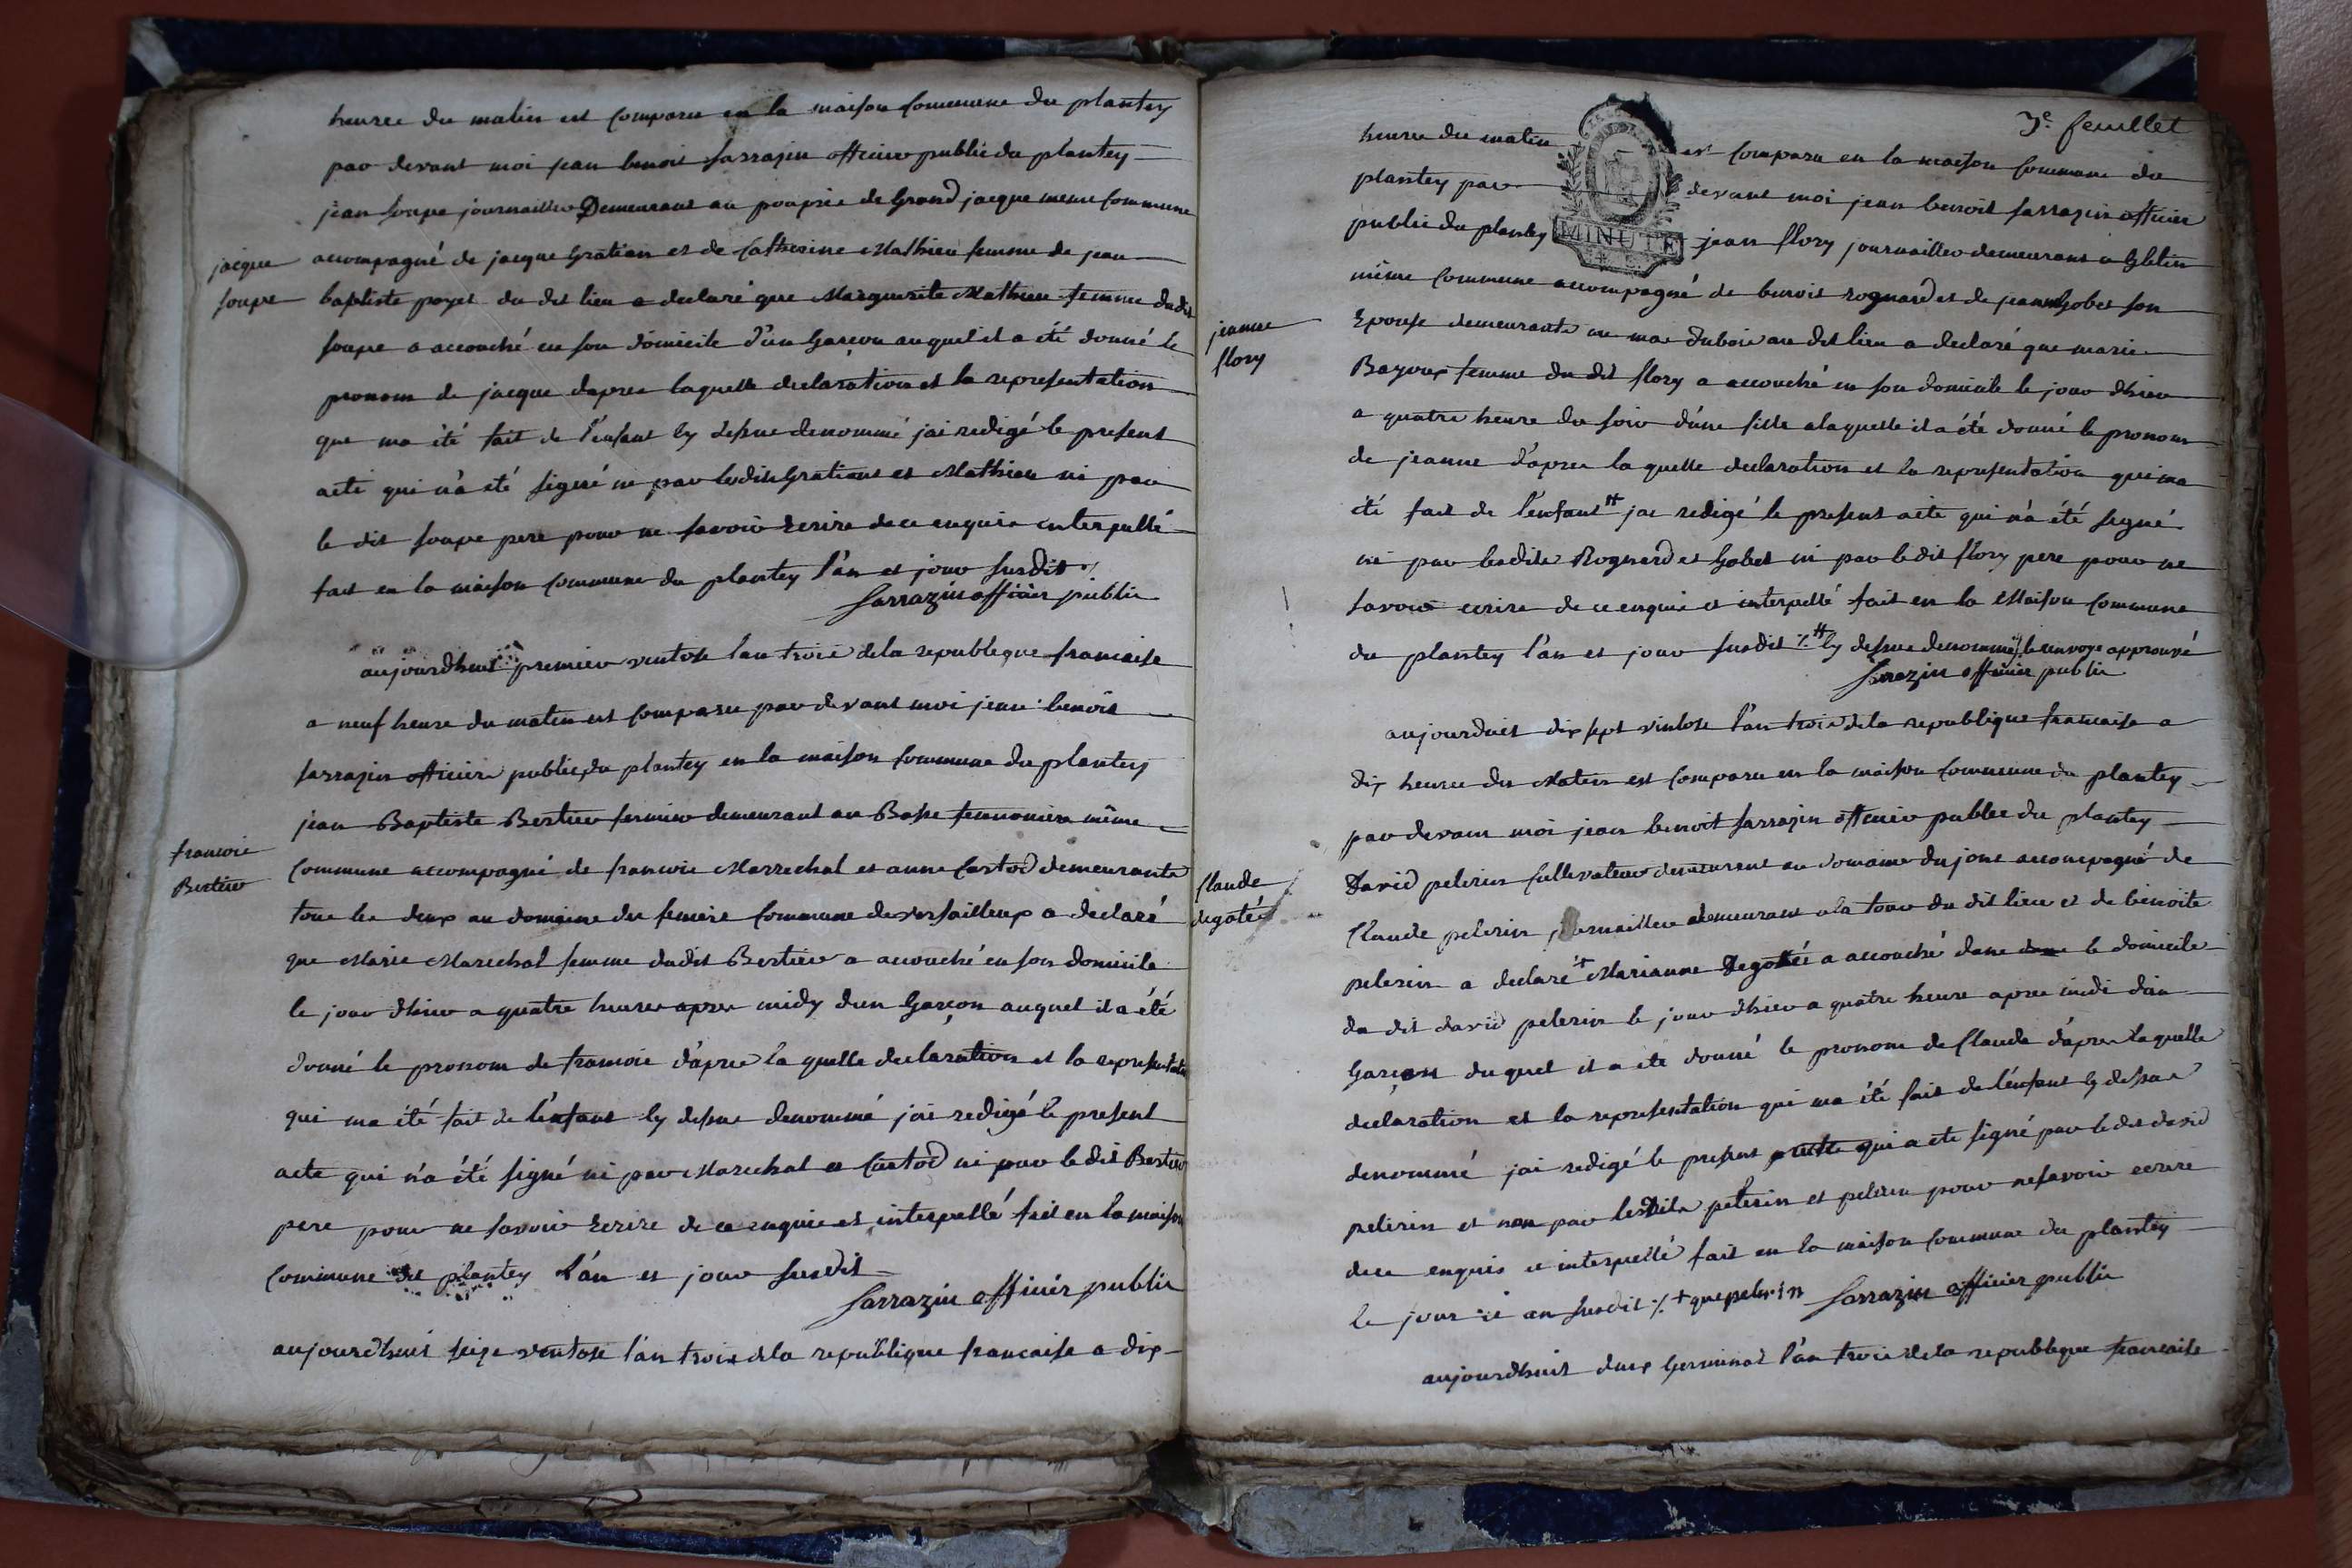 heures du matin est comparu en la maison commune du plantey
par devant moi jean benoit sarrazin officier public du plantey
jean soupe journaillier Demeurant au pouprié de Grand jacque meme commune
jacque
soupe
accompagné de jacque gratian et de catherine Mathieu femme de jean
baptiste poyet du dit lieu a declaré que Marguerite Mathieu femme dudit
soupe a accouché en son domicile d'un Garcon auquel il a été donné le
pronom de jacque dapres laquelle declaration et la representation
que ma été fait de l'enfant cy dessus denommé jai redigé le present
acte qui n'a été signé ni par lesdits Gratians et Mathieu ni par
le dit soupe pere pour ne savoir Ecrire de ce enquis interpellé
fait en la maison commune du plantey l'an et jour susdit ./.
Sarrazin officier public
aujourdhuit premier ventose lan trois de la republique francaise
a neuf heure du matin est comparu par devant moi jean benoit
sarrazin officier public du plantey en la maison commune du plantey
jean Baptiste Bertier fermier demeurant au Basse même
francois
Bertier
commune accompagné de francois Marrechal et anne Castod demeurants
tous les deux au domaine du commune de versailleux a declaré
que Marie Marechal femme dudit Bertier a accouché en son domicile
le jour d'hier a quatre heures apres midy d'un Garçon auquel il a été
donné le pronom de francois d'apres la quelle declaration et la representation
qui ma été fait de l'enfant cy dessus denommé jai redigé le present
acte qui n'a été signé ni par Marechal et Castod ni par le dit Bertier
pere pour ne savoir Ecrire de ce enquis et interpellé fait en la maison
commune du plantey l'an et jour susdit
Sarrazin officier public
aujourdhuit seize ventose l'an trois dela republique francaise a dix
3e feuillet
heures du matin est comparu en la maison commune du
plantey par devant moi jean benoit sarrazin officier
public du plantey MINUTE jean flory journaillier demeurant a
même commune accompagné de benoit rognard et de jeanne Gobet son
jeanne
flory
Epouse demeurants au mas dubois au dit lieu a declaré que marie
femme du dit flory a accouché en son domicile le jour d'hier
a quatre heure du soir d'une fille a laquelle il a été donné le pronom
de jeanne d'apres la quelle declaration et la representation qui ma
été fait de l'enfant # jai redigé le present acte qui n'a été signé
ni par lesdits Rognard et Gobet ni par le dit flory pere pour ne
savoir ecrire de ce enquis et interpellé fait en la Maison commune
du plantey l'an et jour susdit ./. # cy dessus denommé le renvoye approuvé
Sarrazin officier public
aujourduit dix sept vintose l'an trois de la republique francaise a
dix heures du Matin est comparu en la maison commune du plantey
par devant moi jean benoit sarrazin officier public du plantey
David pelerin cultivateur demeurant au domaine du jonc accompagné de
Claude
degoté
Claude pelerin journaillier demeurant a la tour du dit lieu et de benoite
pelerin a declaré + Marianne Degoté a accouché dans le domicile
du dit david pelerin le jour d'hier a quatre heure apres midi d'un
Garçon duquel il a été donné le pronom de Claude d'apres laquelle
declaration et la representation qui ma été fait de l'enfant cy dessus
denommé jai redigé le present qui a ete signé par le dit david
pelerin et non par lesdits pelerin et pelerin pour ne savoir ecrire
de ce enquis et interpellé fait en la maison commune du plantey
le jour et an susdit ./. + que pelerin Sarrazin officier public
aujourdhuit deux Germinal l'an trois de la republique francaise